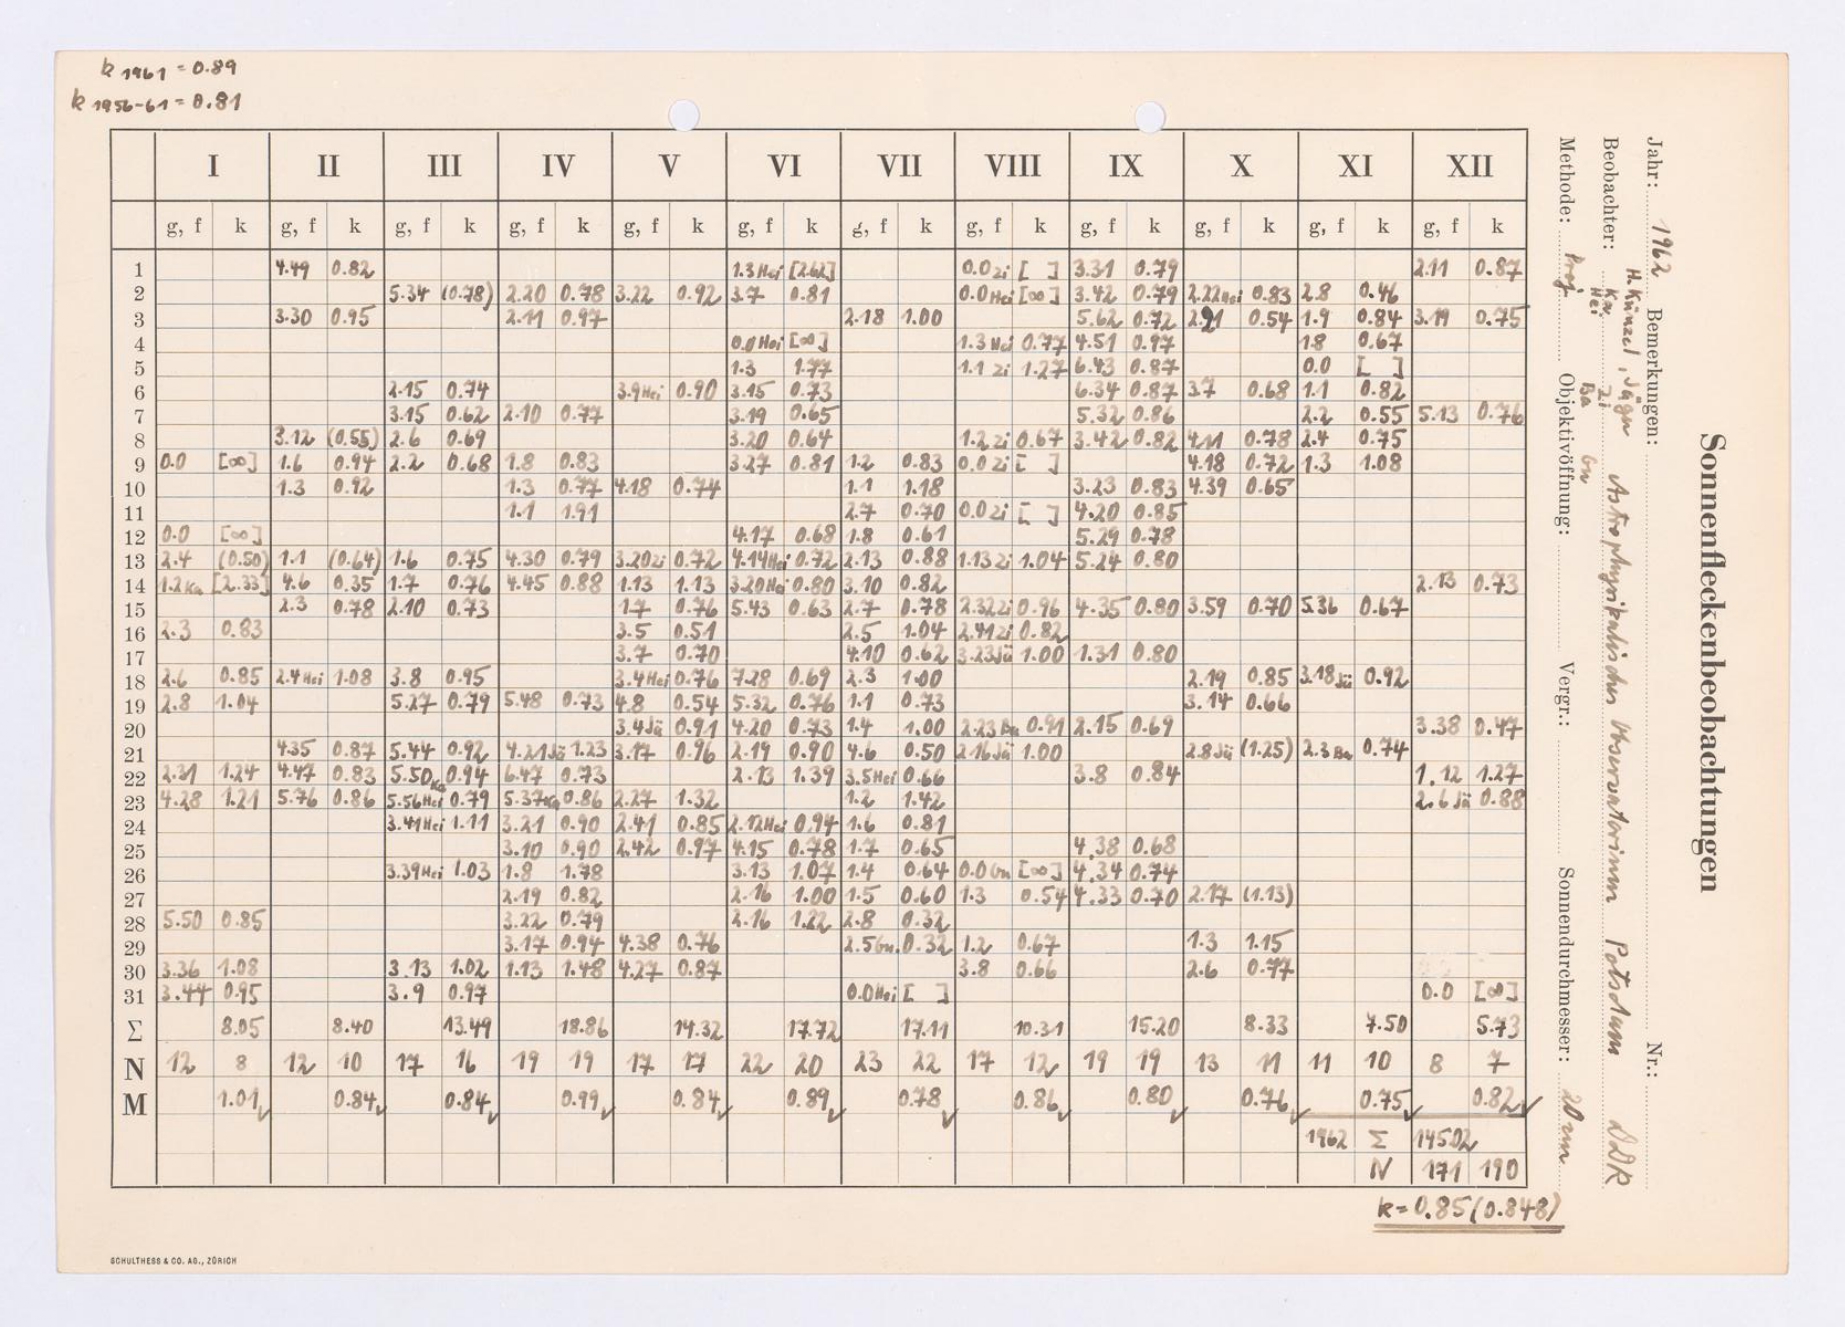 k 1961 = 0.89
k 1956-61 = 0.81
Sonnenfleckenbeobachtungen
Jahr: 1962 Bemerkungen: Nr.:
Beobachter: H. Künzel, Jäger Astrophysikalisches Observatorium Potsdam DDR
Ka Zi
Hei Ba Gu
Methode: Proj. Objektivöffnung: Vergr.: Sonnendurchmesser: 20 cm
I II III IV V VI VII VIII IX X XI XII
g, f k g, f k g, f k g, f k g, f k g, f k g, f k g, f k g, f k g, f k g, f k g, f k
1 4.49 0.82 1.3 Hei [2.62] 0.0 zi [ ] 3.31 0.79 2.11 0.87
2 5.34 (0.78) 2.20 0.78 3.22 0.92 3.7 0.81 0.0 Hei [∞] 3.42 0.79 2.22 Hei 0.83 2.8 0.46
3 3.30 0.95 2.11 0.97 2.18 1.00 5.62 0.72 2.21 0.54 1.9 0.84 3.19 0.75
4 0.0 Hei [∞] 1.3 Hei 0.77 4.51 0.97 1.8 0.67
5 1.3 1.77 1.1 zi 1.27 6.43 0.87 0.0 [ ]
6 2.15 0.74 3.9 Hei 0.90 3.15 0.73 6.34 0.87 3.7 0.68 1.1 0.82
7 3.15 0.62 2.10 0.77 3.19 0.65 5.32 0.86 2.2 0.55 5.13 0.76
8 3.12 (0.55) 2.6 0.69 3.20 0.64 1.2 zi 0.67 3.42 0.82 4.11 0.78 2.4 0.75
9 0.0 [∞] 1.6 0.94 2.2 0.68 1.8 0.83 3.27 0.81 1.2 0.83 0.0 zi [ ] 4.18 0.72 1.3 1.08
10 1.3 0.92 1.3 0.77 4.18 0.74 1.1 1.18 3.23 0.83 4.39 0.65
11 1.1 1.91 2.7 0.70 0.0 zi [ ] 4.20 0.85
12 0.0 [∞] 4.17 0.68 1.8 0.61 5.29 0.78
13 2.4 (0.50) 1.1 (0.64) 1.6 0.75 4.30 0.79 3.20 zi 0.72 4.14 Hei 0.72 2.13 0.88 1.13 zi 1.04 5.24 0.80
14 1.2 Ka [2.33] 4.6 0.35 1.7 0.76 4.45 0.88 1.13 1.13 3.20 Hei 0.80 3.10 0.82 2.13 0.73
15 2.3 0.78 2.10 0.73 1.7 0.76 5.43 0.63 2.7 0.78 2.32 zi 0.96 4.35 0.80 3.59 0.70 5.36 0.67
16 2.3 0.83 3.5 0.51 2.5 1.04 2.41 zi 0.82
17 3.7 0.70 4.10 0.62 3.23 Jä 1.00 1.31 0.80
18 2.6 0.85 2.4 Hei 1.08 3.8 0.95 3.4 Hei 0.76 7.28 0.69 2.3 1.00 2.19 0.85 3.18 Jä 0.92
19 2.8 1.04 5.27 0.79 5.48 0.73 4.8 0.54 5.32 0.76 1.1 0.73 3.14 0.66
20 3.4 Jä 0.91 4.20 0.73 1.4 1.00 2.23 Ba 0.91 2.15 0.69 3.38 0.47
21 4.35 0.87 5.44 0.92 4.21 Jä 1.23 3.17 0.96 2.19 0.90 4.6 0.50 2.16 Jä 1.00 2.8 Jä (1.25) 2.3 Ba 0.74
22 2.31 1.24 4.47 0.83 5.50 Ka 0.94 6.47 0.73 2.13 1.39 3.5 Hei 0.66 3.8 0.84 1.12 1.27
23 4.28 1.21 5.76 0.86 5.56 Hei 0.79 5.37 Ka 0.86 2.27 1.32 1.2 1.42 2.6 Jä 0.88
24 3.41 Hei 1.11 3.21 0.90 2.41 0.85 2.12 Hei 0.94 1.6 0.81
25 3.10 0.90 2.42 0.97 4.15 0.78 1.7 0.65 4.38 0.68
26 3.39 Hei 1.03 1.8 1.78 3.13 1.07 1.4 0.64 0.0 Gu [∞] 4.34 0.74
27 2.19 0.82 2.16 1.00 1.5 0.60 1.3 0.54 4.33 0.70 2.17 (1.13)
28 5.50 0.85 3.22 0.79 2.16 1.22 2.8 0.32
29 3.17 0.94 4.38 0.76 2.5 Gu. 0.32 1.2 0.67 1.3 1.15
30 3.36 1.08 3.13 1.02 1.13 1.48 4.27 0.87 3.8 0.66 2.6 0.77
31 3.44 0.95 3.9 0.97 0.0 Hei [ ] 0.0 [∞]
Σ 8.05 8.40 13.49 18.86 14.32 17.72 17.11 10.31 15.20 8.33 7.50 5.73
N 12 8 12 10 17 16 19 19 17 17 22 20 23 22 17 12 19 19 13 11 11 10 8 7
M 1.01 0.84 0.84 0.99 0.84 0.89 0.78 0.86 0.80 0.76 0.75 0.82
1962 Σ 145.02
N 171 190
k = 0.85 (0.848)
SCHULTHESS & CO. AG., ZÜRICH